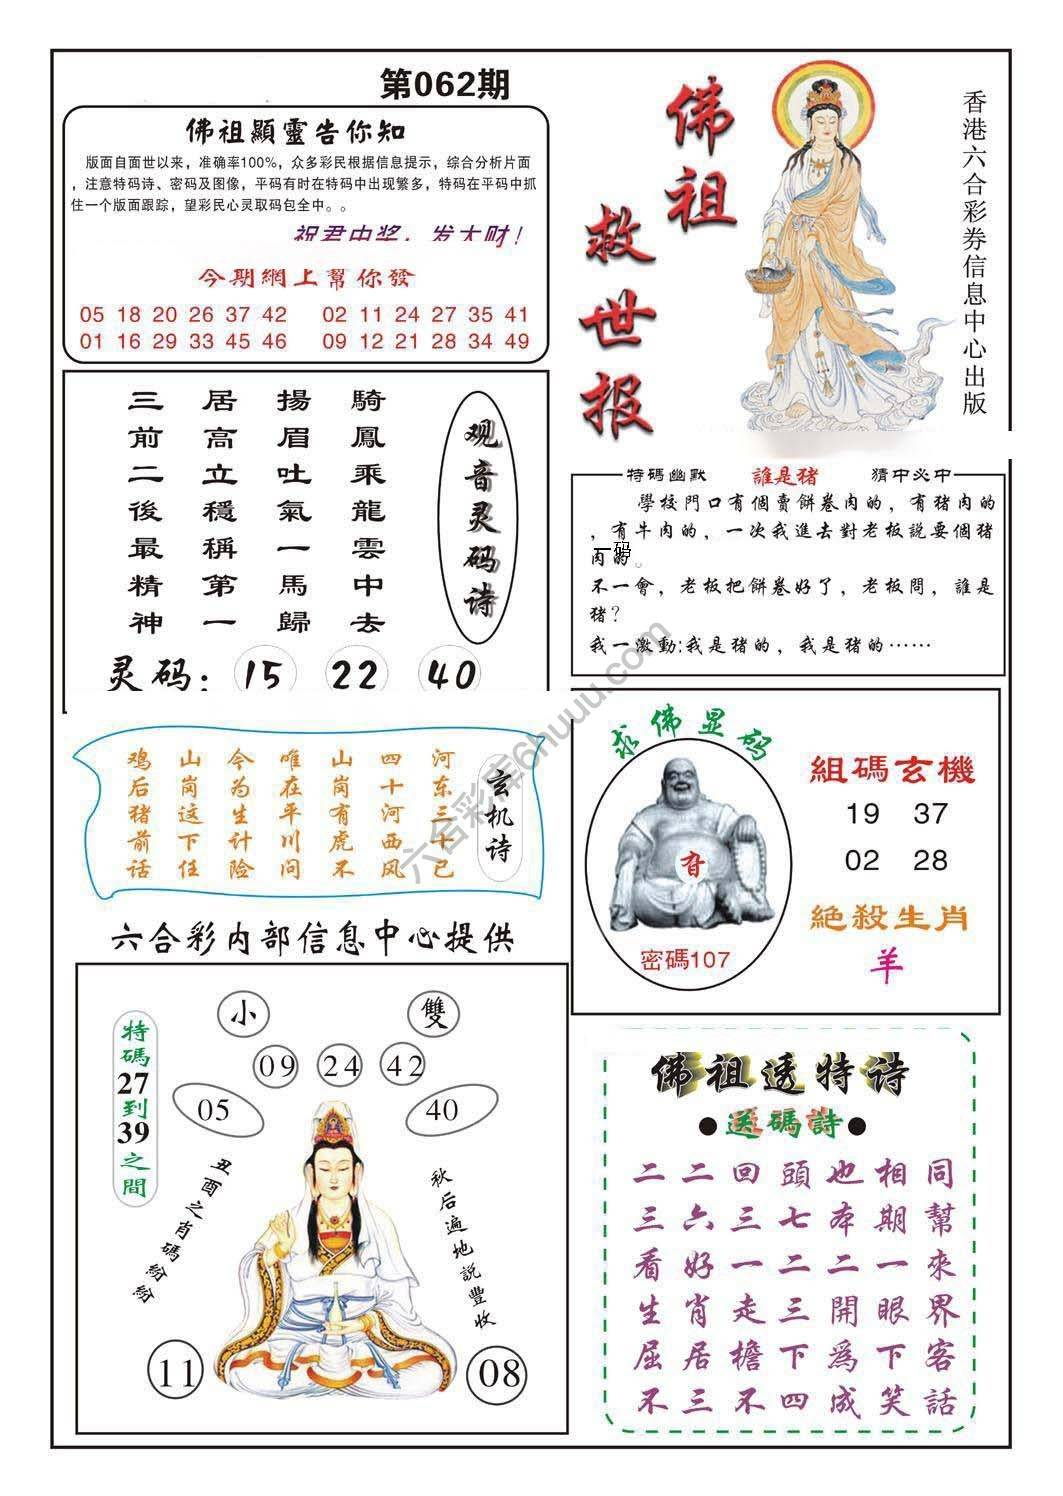 第062期
佛祖顯靈告你知
版面自面世以来，准确率100%，众多彩民根据信息提示，综合分析片面
，注意特码诗、密码及图像，平码有时在特码中出现繁多，特码在平码中抓
住一个版面跟踪，望彩民心灵取码包全中。。
祝君中奖，发大财！
今期網上幫你發
05 18 20 26 37 42 02 11 24 27 35 41
01 16 29 33 45 46 09 12 21 28 34 49
佛祖
救世报
香港六合彩券信息中心出版
观音灵码诗
騎鳳乘龍雲中去
揚眉吐氣一馬歸
居高立穩稱第一
三前二後最精神
灵码：15 22 40
特碼幽默 誰是猪 猜中必中
學校門口有個賣餅卷肉的，有猪肉的
，有牛肉的，一次我進去對老板説要個猪
肉的
一码
不一會，老板把餅卷好了，老板問，誰是
猪?
我一激動:我是猪的，我是猪的……
玄机诗
河东三十已
四十河西风
山岗有虎不
唯在平川问
今为生计险
山岗这下任
鸡后猪前话
求佛显码
密碼107
組碼玄機
19 37
02 28
絶殺生肖
羊
六合彩内部信息中心提供
小 雙
09 24 42
05 40
特碼27到39之間
丑酉之肖碼紛紛
秋后遍地説豐收
11 08
佛祖透特诗
●送碼詩●
二二回頭也相同
三六三七本期幫
看好一二二一來
生肖走三開眼界
屈居檐下爲下客
不三不四成笑話
六合彩库6huuu.com